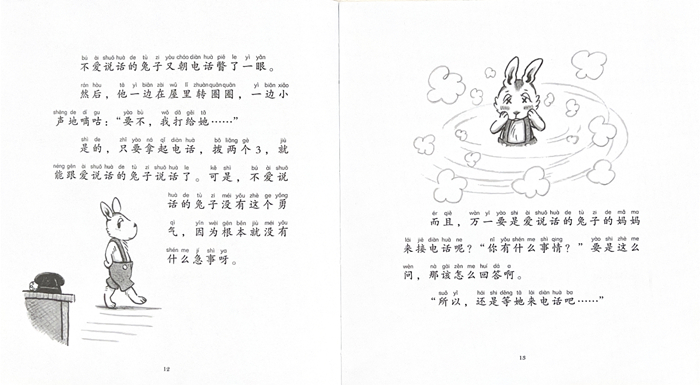 bú ài shuō huà de tù zi yòu cháo diàn huà piē le yì yǎn
不爱说话的兔子又朝电话瞥了一眼。
rán hòu tā yì biān zài wū lǐ zhuàn quān quān yì biān xiǎo
然后，他一边在屋里转圈圈，一边小
shēng de dí gu yào bù wǒ dǎ gěi tā
声地嘀咕：“要不，我打给她……”
shì de zhǐ yào ná qǐ diàn huà bō liǎng gè jiù
是的，只要拿起电话，拨两个3，就
néng gēn ài shuō huà de tù zi shuō huà le kě shì bú ài shuō
能跟爱说话的兔子说话了。可是，不爱说
huà de tù zi méi yǒu zhè ge yǒng
话的兔子没有这个勇
qì yīn wèi gēn běn jiù méi yǒu
气，因为根本就没有
shén me jí shì ya
什么急事呀。
12
ér qiě wàn yī yào shi ài shuō huà de tù zi de mā ma
而且，万一要是爱说话的兔子的妈妈
lái jiē diàn huà ne nǐ yǒu shén me shì qing yào shi zhè me
来接电话呢？“你有什么事情？”要是这么
wèn nà gāi zěn me huí dá a
问，那该怎么回答啊。
suǒ yǐ hái shi děng tā lái diàn huà ba
“所以，还是等她来电话吧……”
13